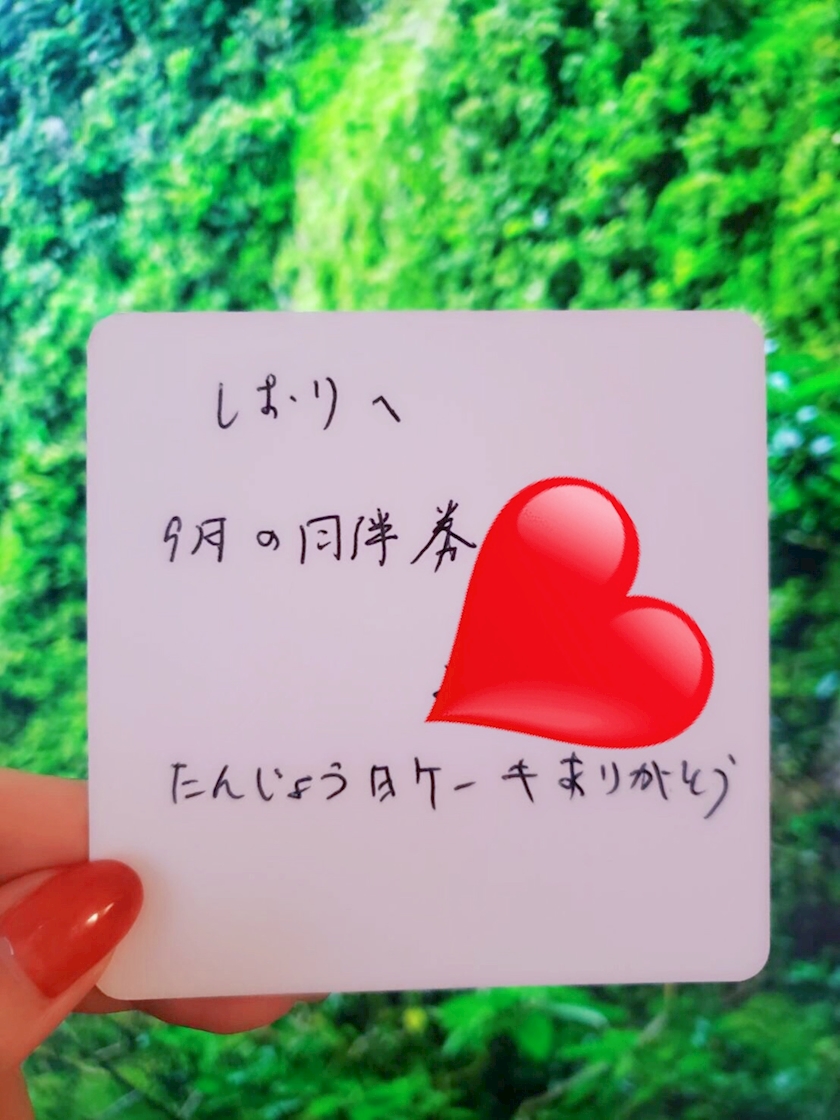 しおりへ
9月の同伴券
たんじょう日ケーキありがとう